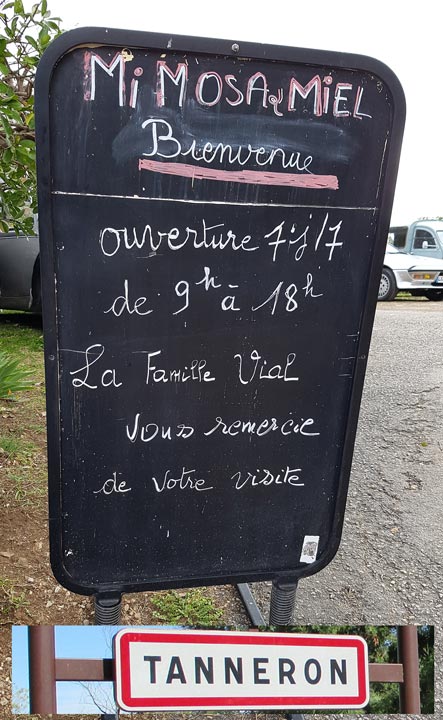 MiMOSA et MiEL
Bienvenue
ouverture 7j/7
de 9h à 18h
La Famille Vial
vous remercie
de votre visite
TANNERON